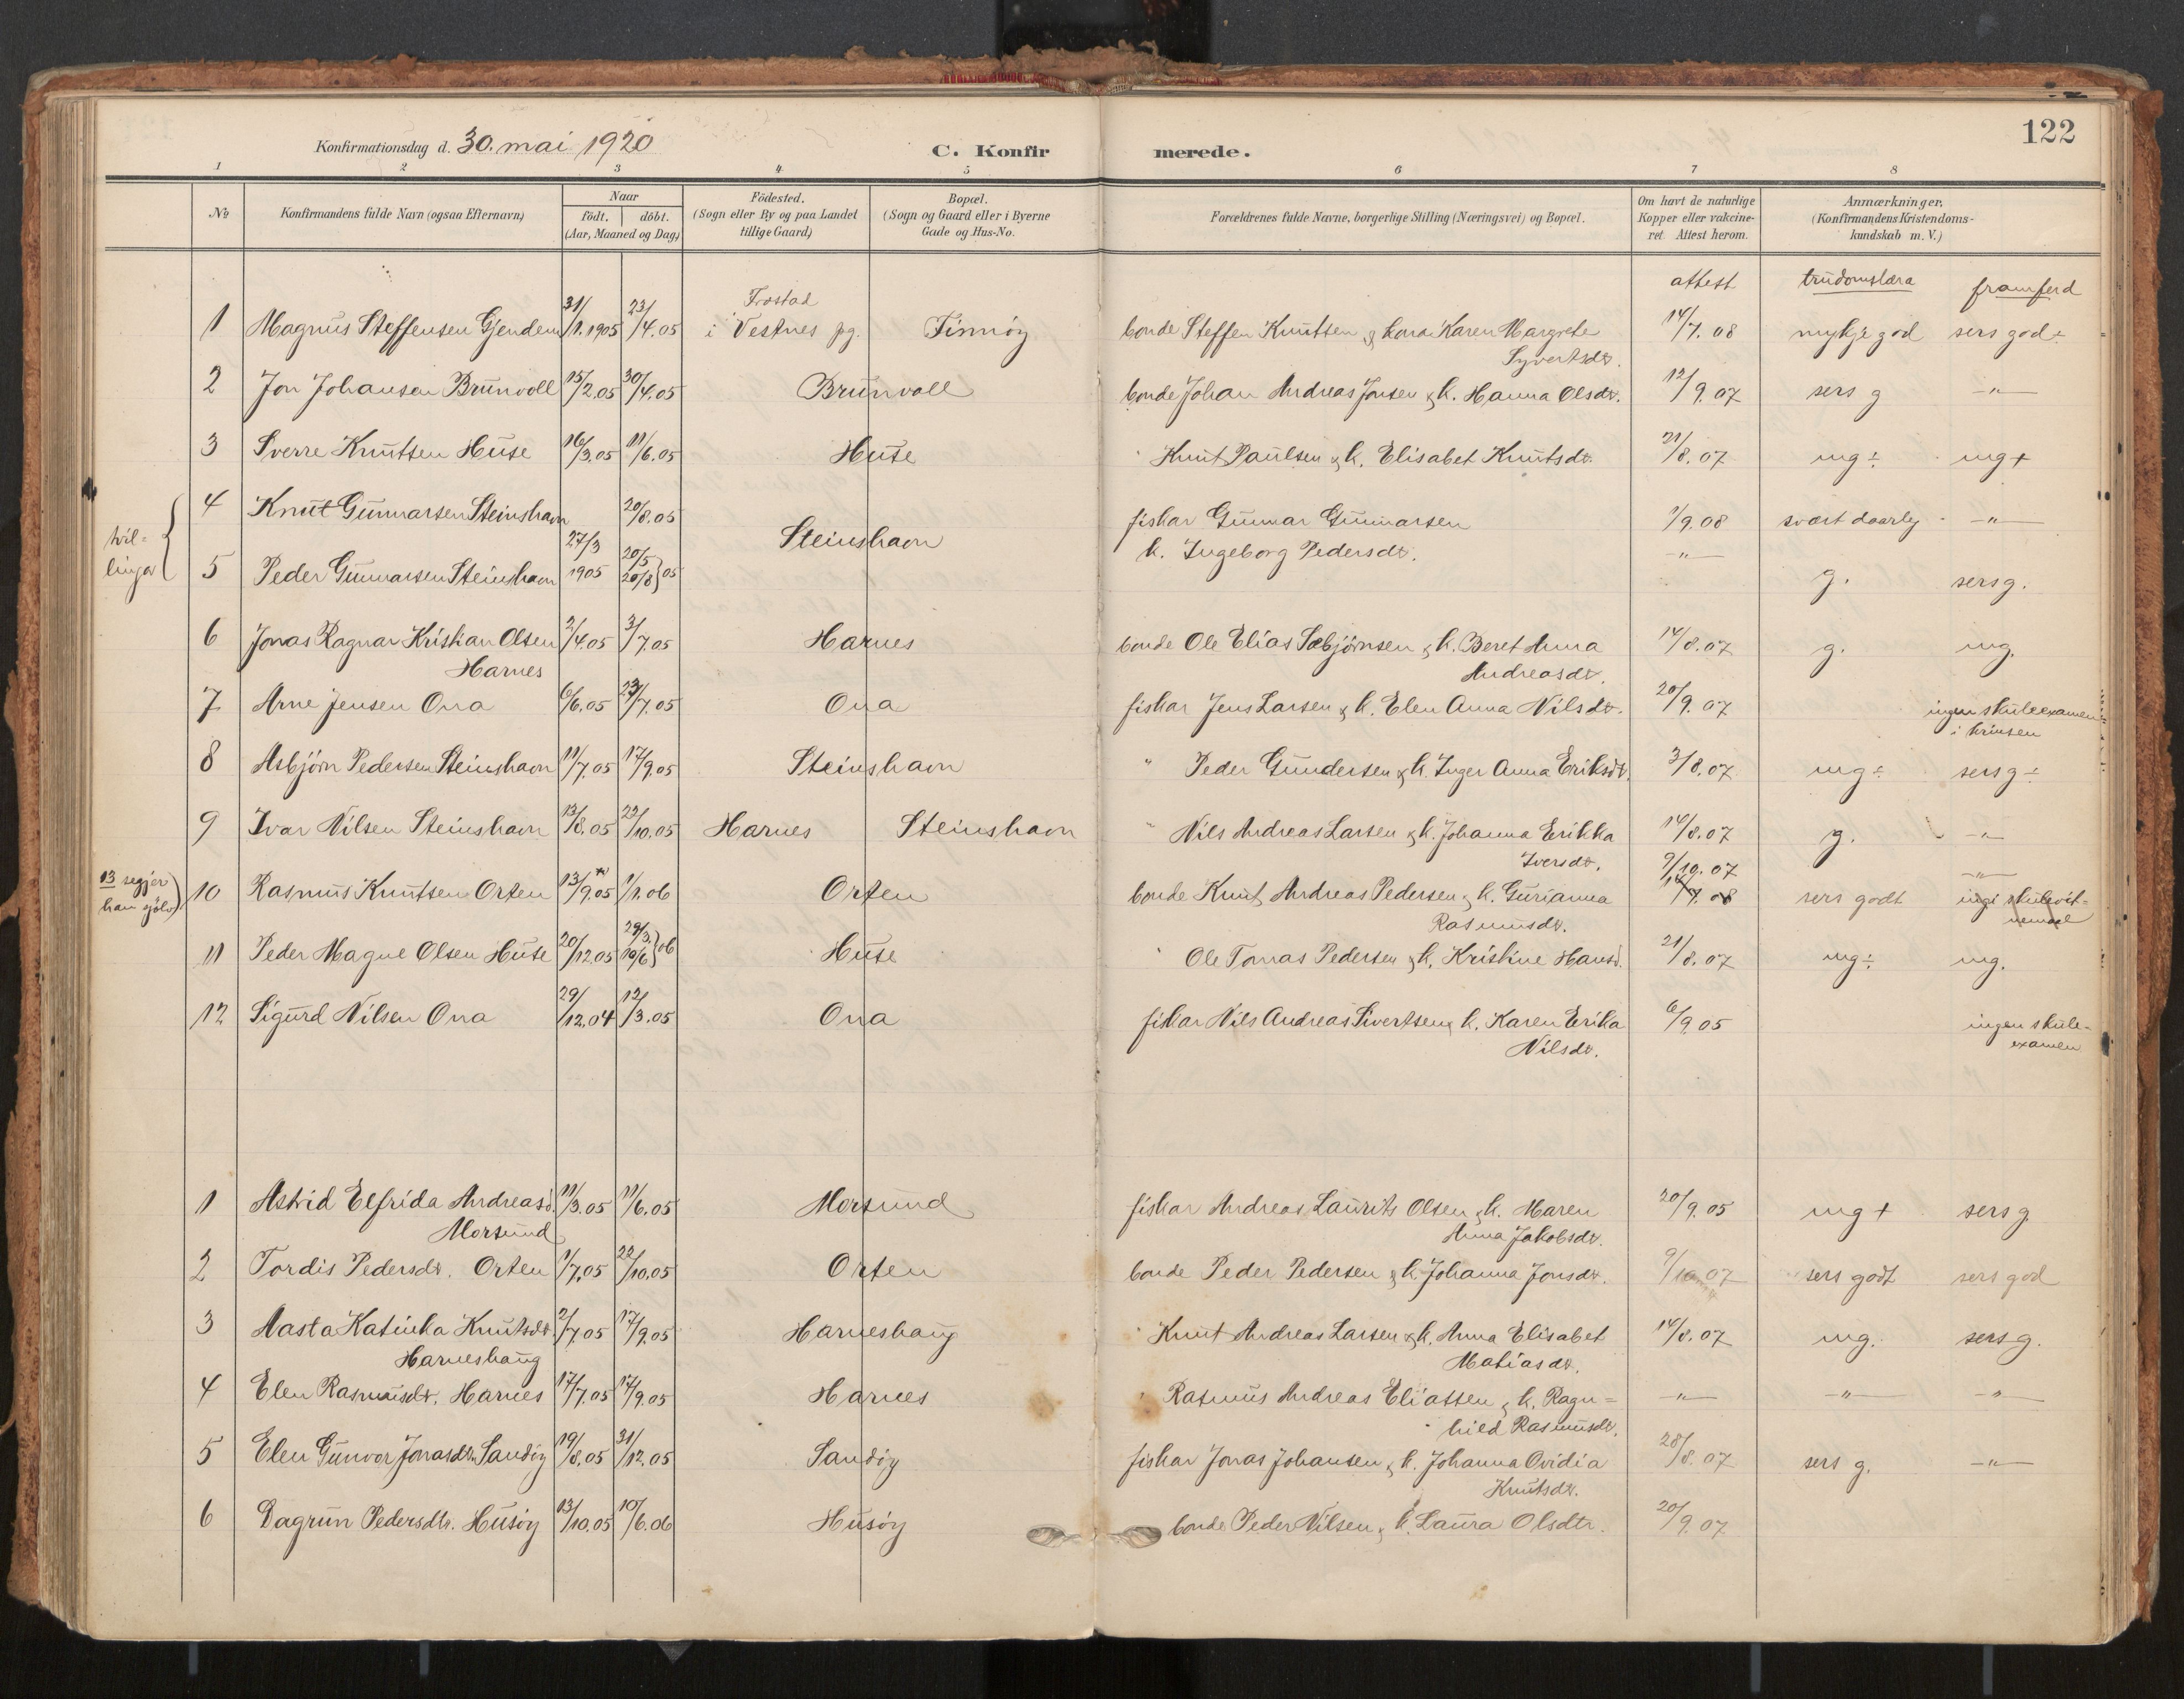 122
Konfirmationsdag d. 30. mai 1920
C. Konfirmerede.
1 2 3 4 5 6 7 8
№
Konfirmandens fulde Navn (ogsaa Efternavn)
Naar
födt. döbt.
(Aar, Maaned og Dag)
Födested.
(Sogn eller By og paa Landet
tillige Gaard)
Bopæl.
(Sogn og Gaard eller i Byerne
Gade og Hus-No.
Forældrenes fulde Navne, borgerlige Stilling (Næringsvei) og Bopæl.
Om havt de naturlige
Kopper eller vakcine-
ret Attest herom.
Anmærkninger.
(Konfirmandens Kristendoms-
kundskab m. V.)
attest trudomslæra framferd
Frostad
1 Magnus Steffensen Gjendem 31/1.1905 23/4.05 i Vestnes pg. Finnöy bonde Steffen Knutsen & kona Karen Margrete 14/7.08 mykje god sers god÷
Syvertsdt.
2 Jon Johansen Brunvoll 15/2.05 30/4.05 Brunvoll bonde Johan Andreas Jonsen & k. Hanna Olsdt. 12/9.07 sers g —"—
3 Sverre Knutsen Huse 16/3.05 11/6.05 Huse " Knut Paulsen & k. Elisabet Knutsdt. 21/8.07 mg÷ mg+
tvil=
linger
4 Knut Gunnarsen Steinshavn 20/8.05 fiskar Gunnar Gunnarsen 1/9.08 svært daarleg —"—
27/3 1905 Steinshavn k. Ingeborg Pedersdt. —"—
5 Peder Gunnarsen Steinshavn 20/5 20/8} 05 g. sers g.
6 Jonas Ragnar Kristian Olsen 2/4.05 3/7.05 Harnes bonde Ole Elias Sæbjörnsen & k. Beret Anna 14/8.07 g. mg.
Harnes Andreasdt.
7 Arne Jensen Ona 6/6.05 23/7.05 Ona fiskar Jens Larsen & k. Elen Anna Nilsdt. 20/9.07 ingen skuleexamen
i krinsen
8 Asbjörn Pedersen Steinshavn 11/7.05 17/9.05 Steinshavn " Peder Gundersen & k. Inger Anna Eriksdt. 3/8.07 mg÷ sers g÷
9 Ivar Nilsen Steinshavn 13/8.05 22/10.05 Harnes Steinshavn " Nils Andreas Larsen & k. Johanna Erikka 14/8.07 g. —"—
Iversdt.
13 segjer
han sjölv)
9/10.07 —"—
10 Rasmus Knutsen Orten 13/9.05 1/1.06 Orten bonde Knut Andreas Pedersen & k. Gurianna 14/7.08 sers godt ingi skulevit=
Rasmusdt. nemaal
11 Peder Magne Olsen Huse 20/12.05 29/3. 10/6} 06 Huse " Ole Tomas Pedersen & k. Kristine Hansd. 21/8.07 mg÷ mg.
12 Sigurd Nilsen Ona 29/12.04 12/3.05 Ona fiskar Nils Andreas Sivertsen & k. Karen Erika 6/9.05 ingen skule-
Nilsdt. examen
1 Astrid Elfrida Andreasd. 11/3.05 11/6.05 Morsund fiskar Andreas Laurits Olsen & k. Maren 20/9.05 mg+ sers g.
Morsund Anna Jakobsdt.
2 Tordis Pedersdt. Orten 1/7.05 22/10.05 Orten bonde Peder Pedersen & k. Johanna Jonsdt. 9/10.07 sers godt sers god
3 Aasta Katinka Knutsdt. 2/7.05 17/9.05 Harneshaug " Knut Andreas Larsen & k. Anna Elisabet 14/8.07 mg. sers g.
Harneshaug Matiasdt.
4 Elen Rasmusdt. Harnes 17/7.05 17/9.05 Harnes " Rasmus Andreas Eliassen & k. Ragn= —"— —"— —"—
hild Rasmusdt.
5 Elen Gunvor Jonasdt. Sandöy 19/8.05 31/12.05 Sandöy fiskar Jonas Johansen & k. Johanna Ovidia 28/8.07 sers g. —"—
Knutsdt.
6 Dagrun Pedersdtr. Husöy 13/10.05 10/6.06 Husöy bonde Peder Nilsen & k. Laura Olsdtr. 20/9.07